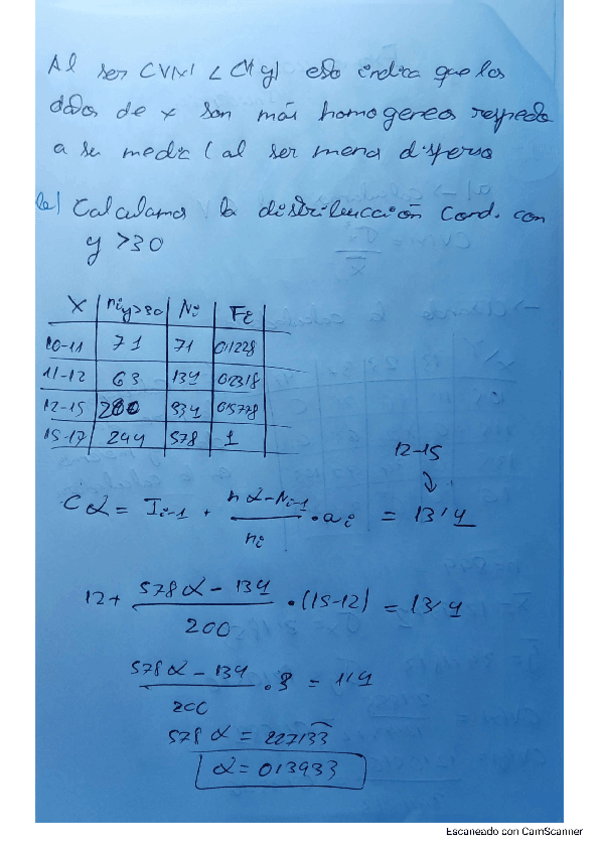 Al ser CV(x) < CV(y) esto indica que los
datos de x son más homogeneos respecto
a su media (al ser menos disperso
b) Calculamos la distribucción Cond. con
y >30
X | ni y>30 | Ni | Fi
10-11 | 71 | 71 | 0'1228
11-12 | 63 | 134 | 0'2318
12-15 | 200 | 334 | 0'5778
15-17 | 244 | 578 | 1
12-15
Cα = Ii-1 + nα-Ni-1 / ni · ai = 13'4
12+ 578α - 134 / 200 · (15-12) = 13'4
578α - 134 / 200 · 3 = 1'4
578α = 227'33
α = 0'3933
Escaneado con CamScanner